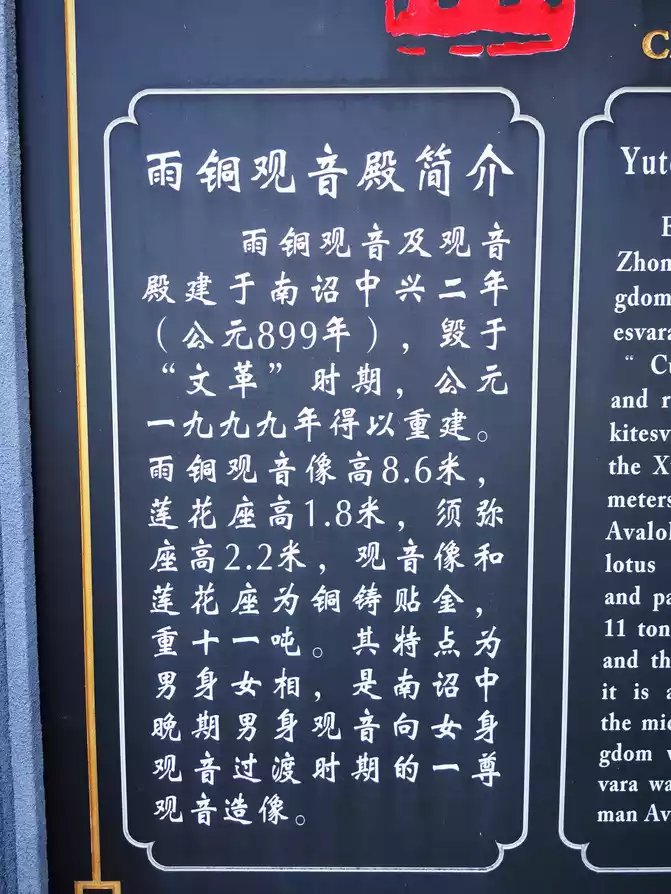 雨铜观音殿简介
雨铜观音及观音
殿建于南诏中兴二年
（公元899年），毁于
“文革”时期，公元
一九九九年得以重建。
雨铜观音像高8.6米，
莲花座高1.8米，须弥
座高2.2米，观音像和
莲花座为铜铸贴金，
重十一吨。其特点为
男身女相，是南诏中
晚期男身观音向女身
观音过渡时期的一尊
观音造像。
Yut
Zhon
gdom
esvara
“ Cu
and r
kitesv
the X
meters
Avalok
lotus
and pa
11 ton
and th
it is a
the mid
gdom v
vara wa
man Av